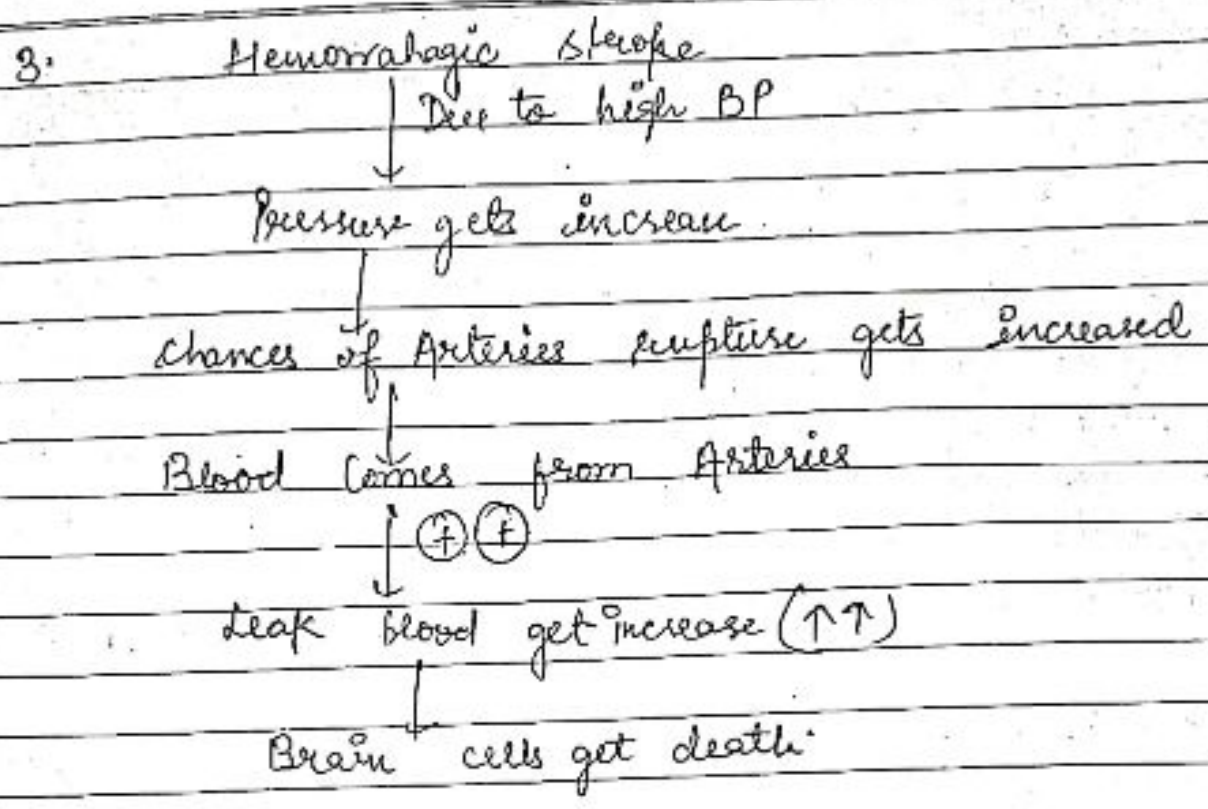 3. Hemorrahagic stroke
Due to high BP
Pressure gets increase.
Chances of Arteries rupture gets increased
Blood Comes from Arteries
+ +
Leak blood get increase (↑↑)
Brain cells get death.